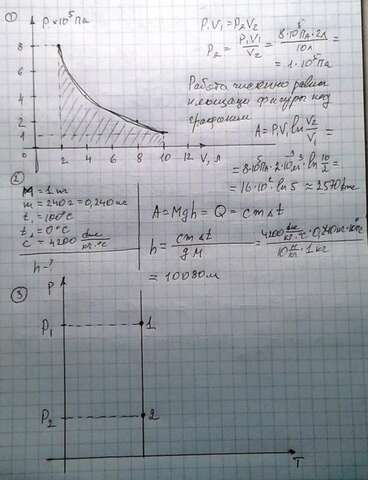 ① P, ×10⁵ Па
8
6
4
2
1
0 2 4 6 8 10 V, л
P₁V₁ = P₂V₂
P₂ = P₁V₁/V₂ = 8·10⁵Па·2л/10л =
= 1·10⁵ Па
Работа численно равна
площади фигуры под
графиком
A = P₁V₁ ln V₂/V₁ =
= 8·10⁵Па·2·10⁻³м³·ln 10/2 =
= 16·10²·ln 5 ≈ 2570 Дж
②
M = 1 кг
m = 240 г = 0,240 кг
t₁ = 100°C
t₂ = 0°C
c = 4200 Дж/кг·°C
h - ?
A = Mgh = Q = cmΔt
h = cmΔt/gM = 4200 Дж/кг·°C·0,240кг·100°C/10 Н/кг·1кг
= 10080 м
③ P
P₁ 1
P₂ 2
T